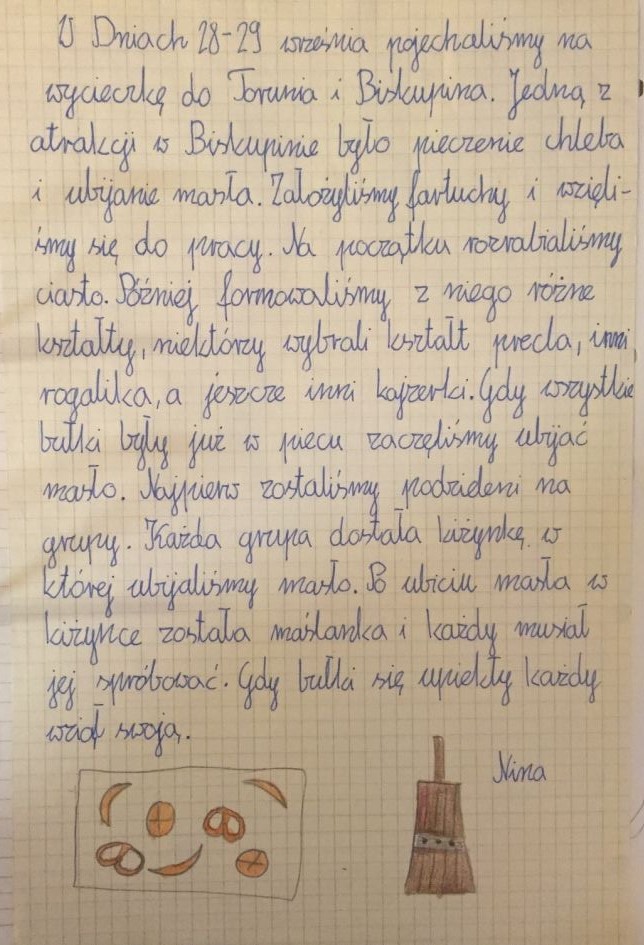 W Dniach 28-29 września pojechaliśmy na
wycieczkę do Torunia i Biskupina. Jedną z
atrakcji w Biskupinie było pieczenie chleba
i ubijanie masła. Założyliśmy fartuchy i wzięli-
śmy się do pracy. Na początku rozrabialiśmy
ciasto. Później formowaliśmy z niego różne
kształty, niektórzy wybrali kształt precla, inni
rogalika, a jeszcze inni kajzerki. Gdy wszystkie
bułki były już w piecu zaczęliśmy ubijać
masło. Najpierw zostaliśmy podzieleni na
grupy. Każda grupa dostała kiżynkę w
której ubijaliśmy masło. Po ubiciu masła w
kiżynce została maślanka i każdy musiał
jej spróbować. Gdy bułki się upiekły każdy
wziął swoją.
Nina